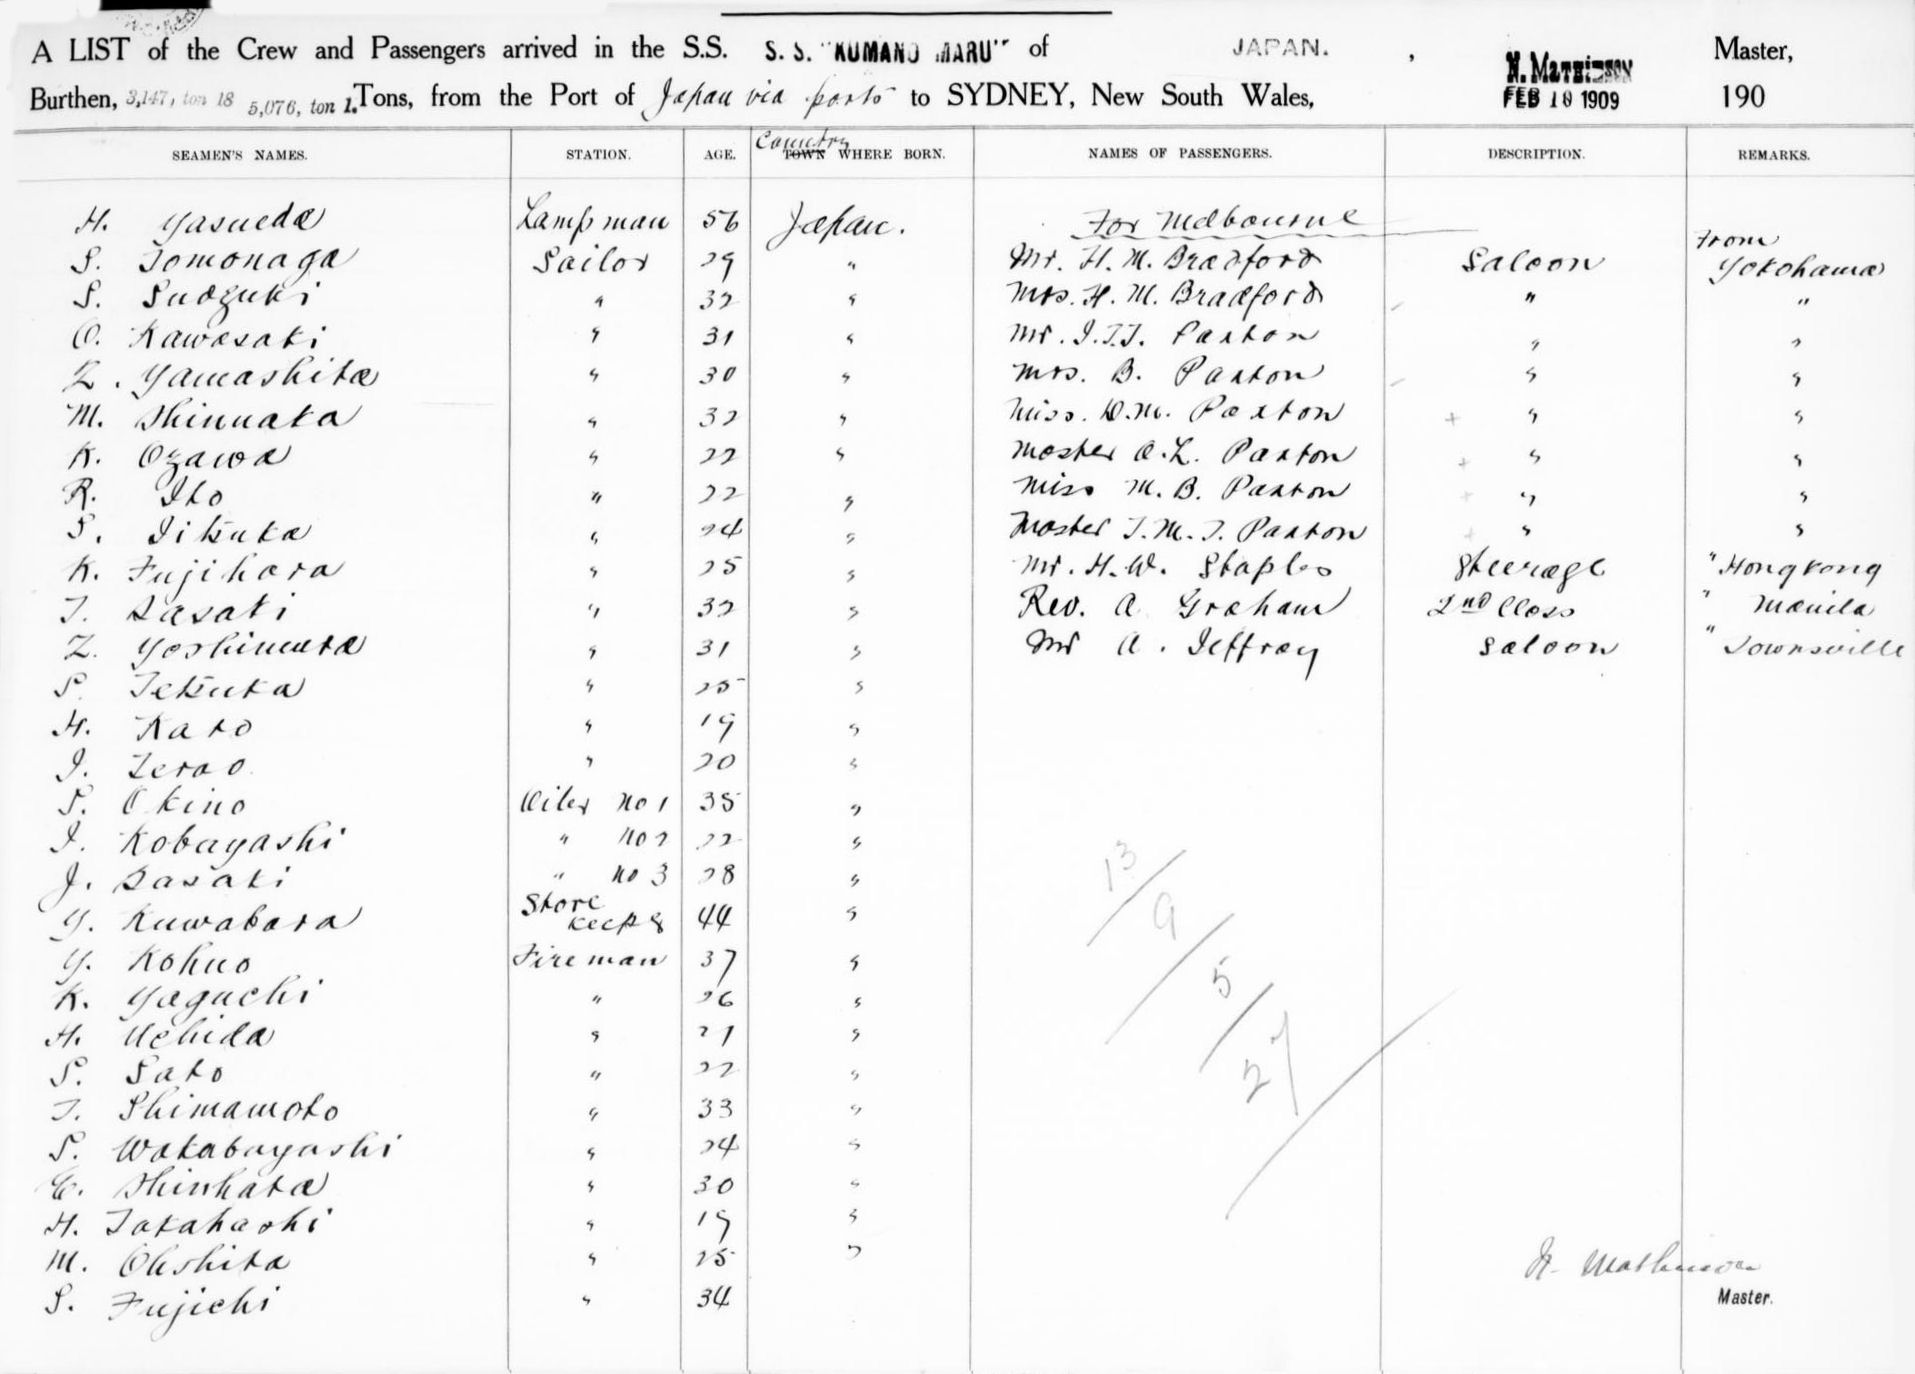 A LIST of the Crew and Passengers arrived in the S.S. S. S. "KUMANO MARU" of JAPAN. , N. MATHIESON Master,
Burthen, 3,147, ton 18 5,076, ton 1. Tons, from the Port of Japan via ports to SYDNEY, New South Wales, FEB 10 1909 190
SEAMEN'S NAMES. STATION. AGE. Country TOWN WHERE BORN. NAMES OF PASSENGERS. DESCRIPTION. REMARKS.
H. Yasueda Lampman 56 Japan. For Melbourne
S. Tomonaga Sailor 29 " Mr. H. M. Bradford Saloon From Yokohama
S. Sudzuki " 32 " Mrs. H. M. Bradford " "
O. Kawasaki " 31 " Mr. J.T.T. Paxton " "
Z. Yamashita " 30 " Mrs. B. Paxton " "
M. Shinnaka " 32 " Miss. D.M. Paxton + " "
K. Ozawa " 22 " Master A.L. Paxton + " "
R. Ito " 22 " Miss M. B. Paxton + " "
S. Iitsuka " 24 " Master T.M.T. Paxton + " "
K. Fujihara " 25 " Mr. H.W. Staples Steerage " Hongkong
T. Sasaki " 32 " Rev. A Graham 2nd Class " Manila
Z. Yoshimura " 31 " Mr A. Jeffray Saloon " Townsville
S. Tetsuka " 25 "
H. Kato " 19 "
I. Terao " 20 "
S. Okino Oiler No 1 35 "
I. Kobayashi " No 2 22 "
J. Sasaki " No 3 28 "
Y. Kuwabara Store Keeper 44 "
Y. Kohno Fireman 37 "
K. Yaguchi " 26 "
H. Uchida " 21 "
S. Sato " 22 "
T. Shimamoto " 33 "
S. Wakabayashi " 24 "
E. Shinhata " 30 "
H. Takahashi " 19 "
M. Ohshita " 25 "
S. Fujichi " 34
13
9
5
27
N. Mathieson
Master.